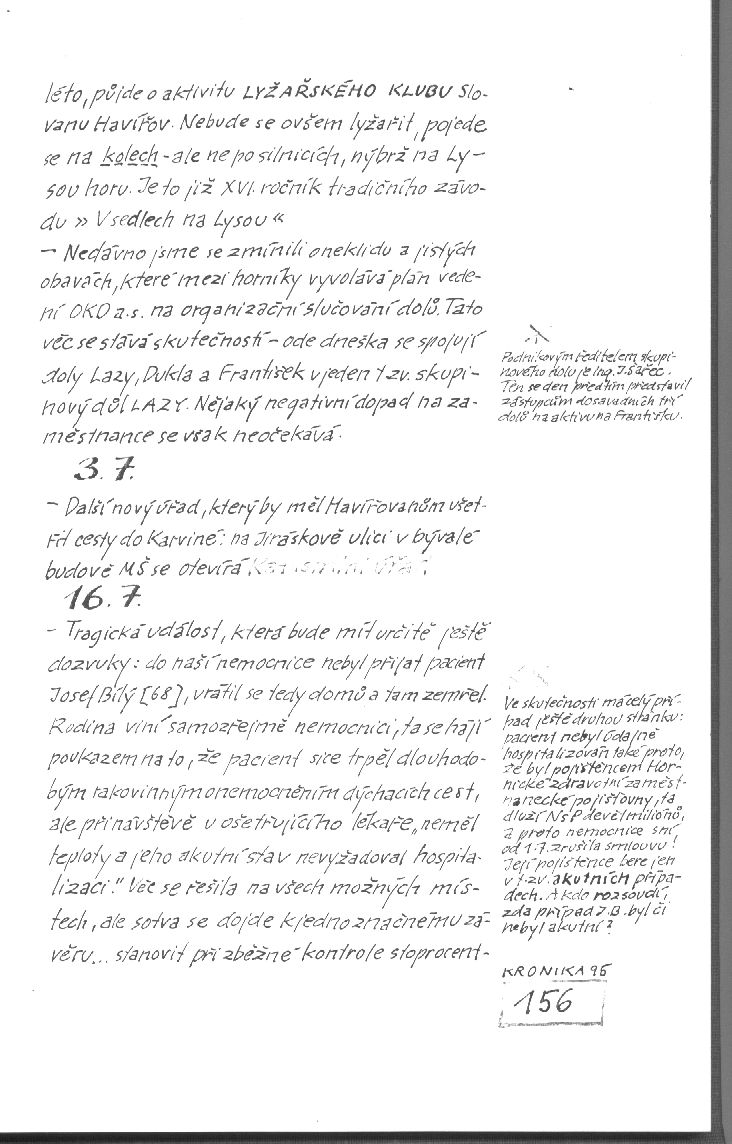 léto, půjde o aktivitu LYŽAŘSKÉHO KLUBU Slo-
vanu Havířov. Nebude se ovšem lyžařit, pojede
se na kolech - ale ne po silnicích, nýbrž na Ly-
sou horu. Je to již XVI. ročník tradičního závo-
du » V sedlech na Lysou «
- Nedávno jsme se zmínili o neklidu a jistých
obavách, které mezi horníky vyvolává plán vede-
ní OKD a.s. na organizační slučování dolů. Tato
věc se stává skutečností - ode dneška se spojují
doly Lazy, Dukla a František v jeden tzv. skupi-
nový důl LAZY. Nějaký negativní dopad na za-
městnance se však neočekává.
Podnikovým ředitelem skupi-
nového dolu je Ing. J. Šařec.
Ten se den předtím představil
zástupcům dosavadních tří
dolů na aktivu na Františku.
3.7.
- Další nový úřad, který by měl Havířovanům ušet-
řit cesty do Karviné: na Jiráskově ulici v bývalé
budově MŠ se otevírá
16.7.
- Tragická událost, která bude mít určitě ještě
dozvuky: do naší nemocnice nebyl přijat pacient
Josef Bílý [68], vrátil se tedy domů a tam zemřel.
Rodina viní samozřejmě nemocnici, ta se hájí
poukazem na to, že pacient sice trpěl dlouhodo-
bým rakovinným onemocněním dýchacích cest,
ale při návštěvě u ošetřujícího lékaře „neměl
teploty a jeho akutní stav nevyžadoval hospita-
lizaci." Věc se řešila na všech možných mís-
tech, ale sotva se dojde k jednoznačnému zá-
věru... stanovit při zběžné kontrole stoprocent-
Ve skutečnosti má celý pří-
pad ještě druhou stránku:
pacient nebyl údajně
hospitalizován také proto,
že byl pojištěncem Hor-
nické zdravotní zaměst-
nanecké pojišťovny, ta
dluží NsP devět milionů,
a proto nemocnice s ní
od 1.7. zrušila smlouvu!
Její pojištěnce bere jen
v tzv. akutních přípa-
dech. A kdo rozsoudí,
zda případ J.B. byl či
nebyl akutní?
KRONIKA 96
156